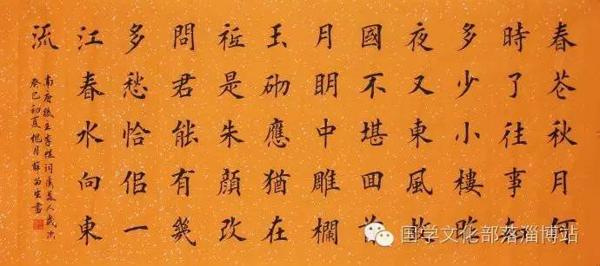 春花秋月何
時了往事知
多少小樓昨
夜又東風故
國不堪囬首
月眀中雕欄
玉砌應猶在
祗是朱顏改
問君能有幾
多愁恰佀一
江春水向東
流
南唐後主李煜詞虞美人
癸巳初夏
国学文化部落淄博站